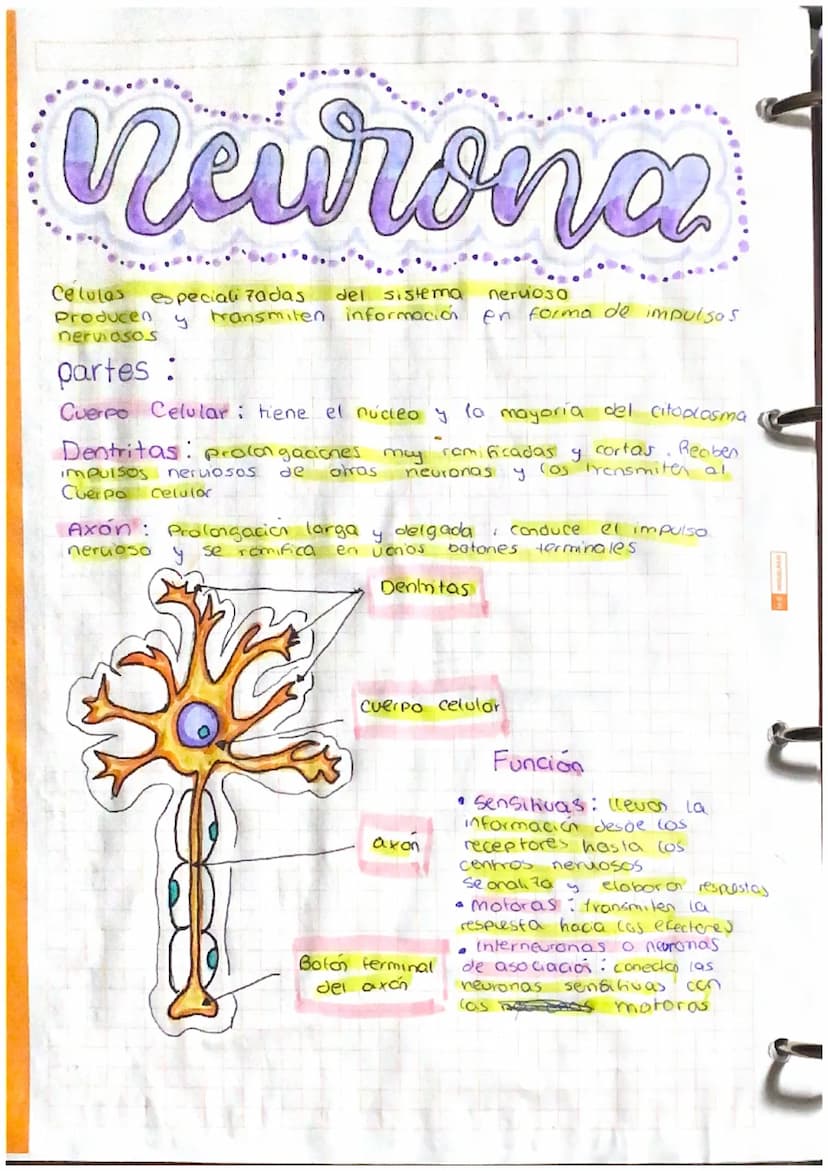 Neurona
Celulas especializadas del sistema nervioso
Producen y transmiten información en forma de impulsos
nerviosos
partes :
Cuerpo Celular : tiene el núcleo y la mayoría del citoplasma
Dentritas : prolongaciones muy ramificadas y cortas. Reciben
impulsos nerviosos de otras neuronas y los transmiten al
Cuerpo celular
Axón : Prolongación larga y delgada, conduce el impulso
nervioso y se ramifica en varios botones terminales
Dentritas
Cuerpo celular
axón
Botón terminal
del axón
Función
• Sensitivas : llevan la
información desde los
receptores hasta los
centros nerviosos
Se analiza y elaboran respuestas
• Motoras : transmiten la
respuesta hacia los efectores
• Interneuronas o neuronas
de asociación : conecta las
neuronas sensitivas con
las motoras